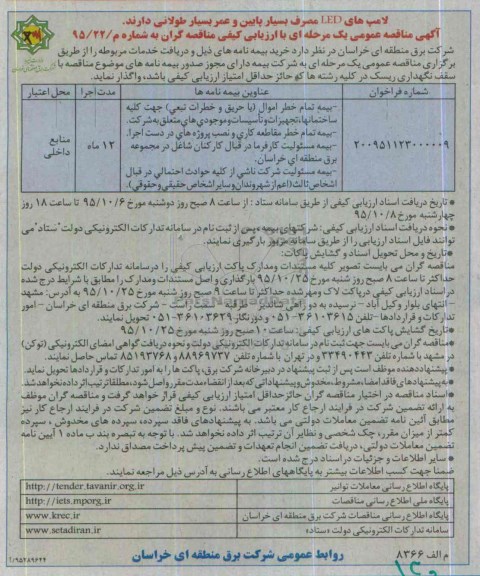 لامپ های LED مصرف بسیار پایین و عمر بسیار طولانی دارند.
آگهی مناقصه عمومی یک مرحله ای با ارزیابی کیفی مناقصه گران به شماره م/۹۵/۲۲
شرکت برق منطقه ای خراسان در نظر دارد خرید بیمه نامه های ذیل و دریافت خدمات مربوطه را از طریق
برگزاری مناقصه عمومی یک مرحله ای به شرکت بیمه دارای مجوز صدور بیمه نامه های موضوع مناقصه با
سقف نگهداری ریسک در کلیه رشته ها کو حائز حداقل امتیاز ارزیابی کیفی باشد، واگذار نماید.
شماره فراخوان عناوین بیمه نامه ها مدت اجرا محل اعتبار
-بیمه تمام خطر اموال (یا حریق و خطرات تبعی) جهت کلیه
ساختمانها، تجهیزات و تأسیسات و موجودی های متعلق به شرکت.
-بیمه تمام خطر مقاطعه کاری و نصب پروژه های در دست اجرا.
-بیمه مسئولیت کارفرما در قبال کارکنان شاغل در مجموعه
برق منطقه ای خراسان.
-بیمه مسئولیت شرکت ناشی از کلیه حوادث احتمالی در قبال
اشخاص ثالث (اعم از شهروندان و سایر اشخاص حقیقی و حقوقی).
۲۰۰۹۵۱۱۲۳۰۰۰۰۰۹
۱۲ ماه
منابع داخلی
تاریخ دریافت اسناد ارزیابی کیفی از طریق سامانه ستاد : از ساعت ۸ صبح روز دوشنبه مورخ ۹۵/۱۰/۶ تا ساعت ۱۸ روز
چهارشنبه مورخ ۹۵/۱۰/۸
نحوه دریافت اسناد ارزیابی کیفی: شرکتهای بیمه، پس از ثبت نام در سامانه تدارکات الکترونیکی دولت "ستاد" می
توانند فایل اسناد ارزیابی را از طریق سامانه مزبور بارگیری نمایند.
تاریخ و محل تحویل اسناد و گشایش پاکات:
مناقصه گران می بایست تصویر کلیه مستندات ومدارک پاکت ارزیابی کیفی را درسامانه تدارکات الکترونیکی دولت
حداکثر تا ساعت ۸ صبح روز شنبه مورخ ۹۵/۱۰/۲۵ بارگذاری و اصل مستندات ومدارک را مطابق با شرایط درج شده
در اسناد ارزیابی کیفی درپاکت لاک ومهر شده حداکثر تا ساعت ۹ صبح روز شنبه مورخ ۹۵/۱۰/۲۵ به آدرس: مشهد
-انتهای بلوار وکیل آباد - نرسیده به دو راهی شاندیز - شرکت برق منطقه ای خراسان - امور
تدارکات و قراردادها - تلفن ۳۶۱۰۳۶۱۵-۰۵۱ و دورنگار ۳۶۱۰۳۶۲۹-۰۵۱ تحویل نمایند.
تاریخ گشایش پاکت های ارزیابی کیفی: ساعت ۱۰ صبح روز شنبه مورخ ۹۵/۱۰/۲۵
مناقصه گران می بایست جهت ثبت نام در سامانه تدارکات الکترونیکی دولت و نحوه دریافت گواهی امضای الکترونیکی (توکن)
در مشهد با شماره تلفن ۳۳۴۹۰۴۴۳ و در تهران با شماره تلفن ۸۸۹۶۹۷۳۷ و ۸۵۱۹۳۷۶۸ تماس حاصل نمایند.
پیشنهاددهنده موظف است پس از ثبت پیشنهاد در دبیرخانه شرکت برق، پاکت ها را به امور تدارکات و قراردادها تحویل نماید.
به پیشنهادهای فاقد امضاء، مشروط، مخدوش و پیشنهاداتی که بعد از انقضاء مدت مقرر واصل شود، مطلقا ترتیب اثر داده نخواهد شد.
اسناد مناقصه در اختیار مناقصه گران حائز حداقل امتیاز ارزیابی کیفی قرار خواهد گرفت و مناقصه گران موظف
به ارائه تضمین شرکت در فرایند ارجاع کار معتبر می باشند. نوع و مبلغ تضمین شرکت در فرایند ارجاع کار نیز
مطابق آئین نامه تضمین معاملات دولتی می باشد. به پیشنهادهای فاقد سپرده، سپرده های مخدوش ، سپرده
کمتر از میزان مقرر، چک شخصی و نظایر آن ترتیب اثر داده نخواهد شد. با توجه به تبصره بند ب ماده ۱ آیین نامه
تضمین معاملات دولتی، دریافت تضمین انجام تعهدات و تضمین پیش پرداخت مصداق ندارد.
سایر اطلاعات و جزئیات در اسناد درج شده است.
ضمنا جهت کسب اطلاعات بیشتر به پایگاههای اطلاع رسانی به آدرس ذیل مراجعه نمایند.
پایگاه اطلاع رسانی معاملات توانیر http://tender.tavanir.org.ir
پایگاه ملی اطلاع رسانی مناقصات http://iets.mporg.ir
پایگاه اطلاع رسانی شرکت برق منطقه ای خراسان www.krec.ir
سامانه تدارکات الکترونیکی دولت «ستاد» www.setadiran.ir
م الف ۸۳۶۶
روابط عمومی شرکت برق منطقه ای خراسان